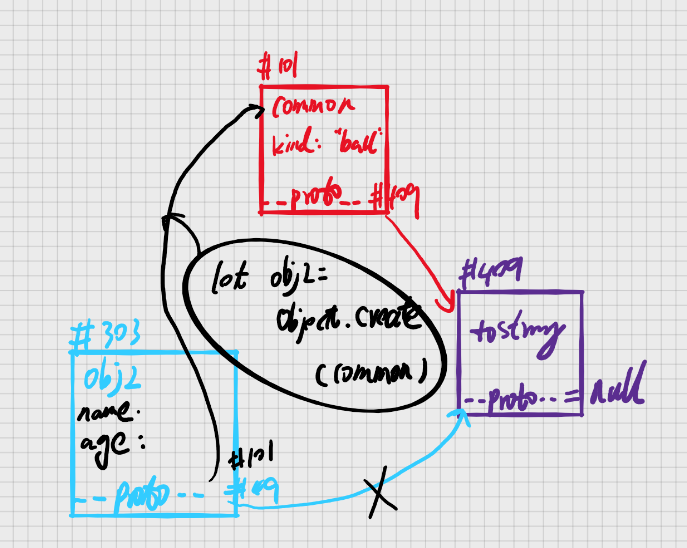 #101
common
kind: "ball"
__proto__ #409
lot obj2=
object.create
(common)
#409
tostrng
__proto__ = null
#303
obj2
name:
age:
#101
__proto__ #409